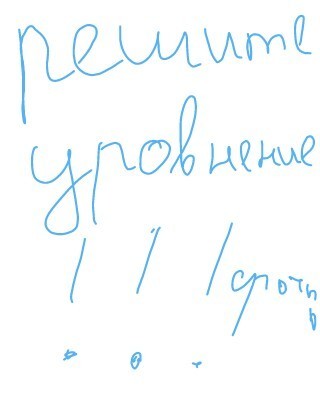 решите
уровнение
! ! ! срочн
о